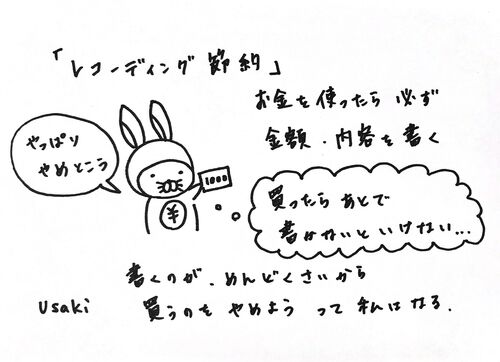 「レコーディング節約」
お金を使ったら必ず
金額・内容を書く
やっぱり
やめとこう
1000
¥
買ったらあとで
書かないといけない...
書くのが、めんどくさいから
買うのをやめようって私はなる.
usaki